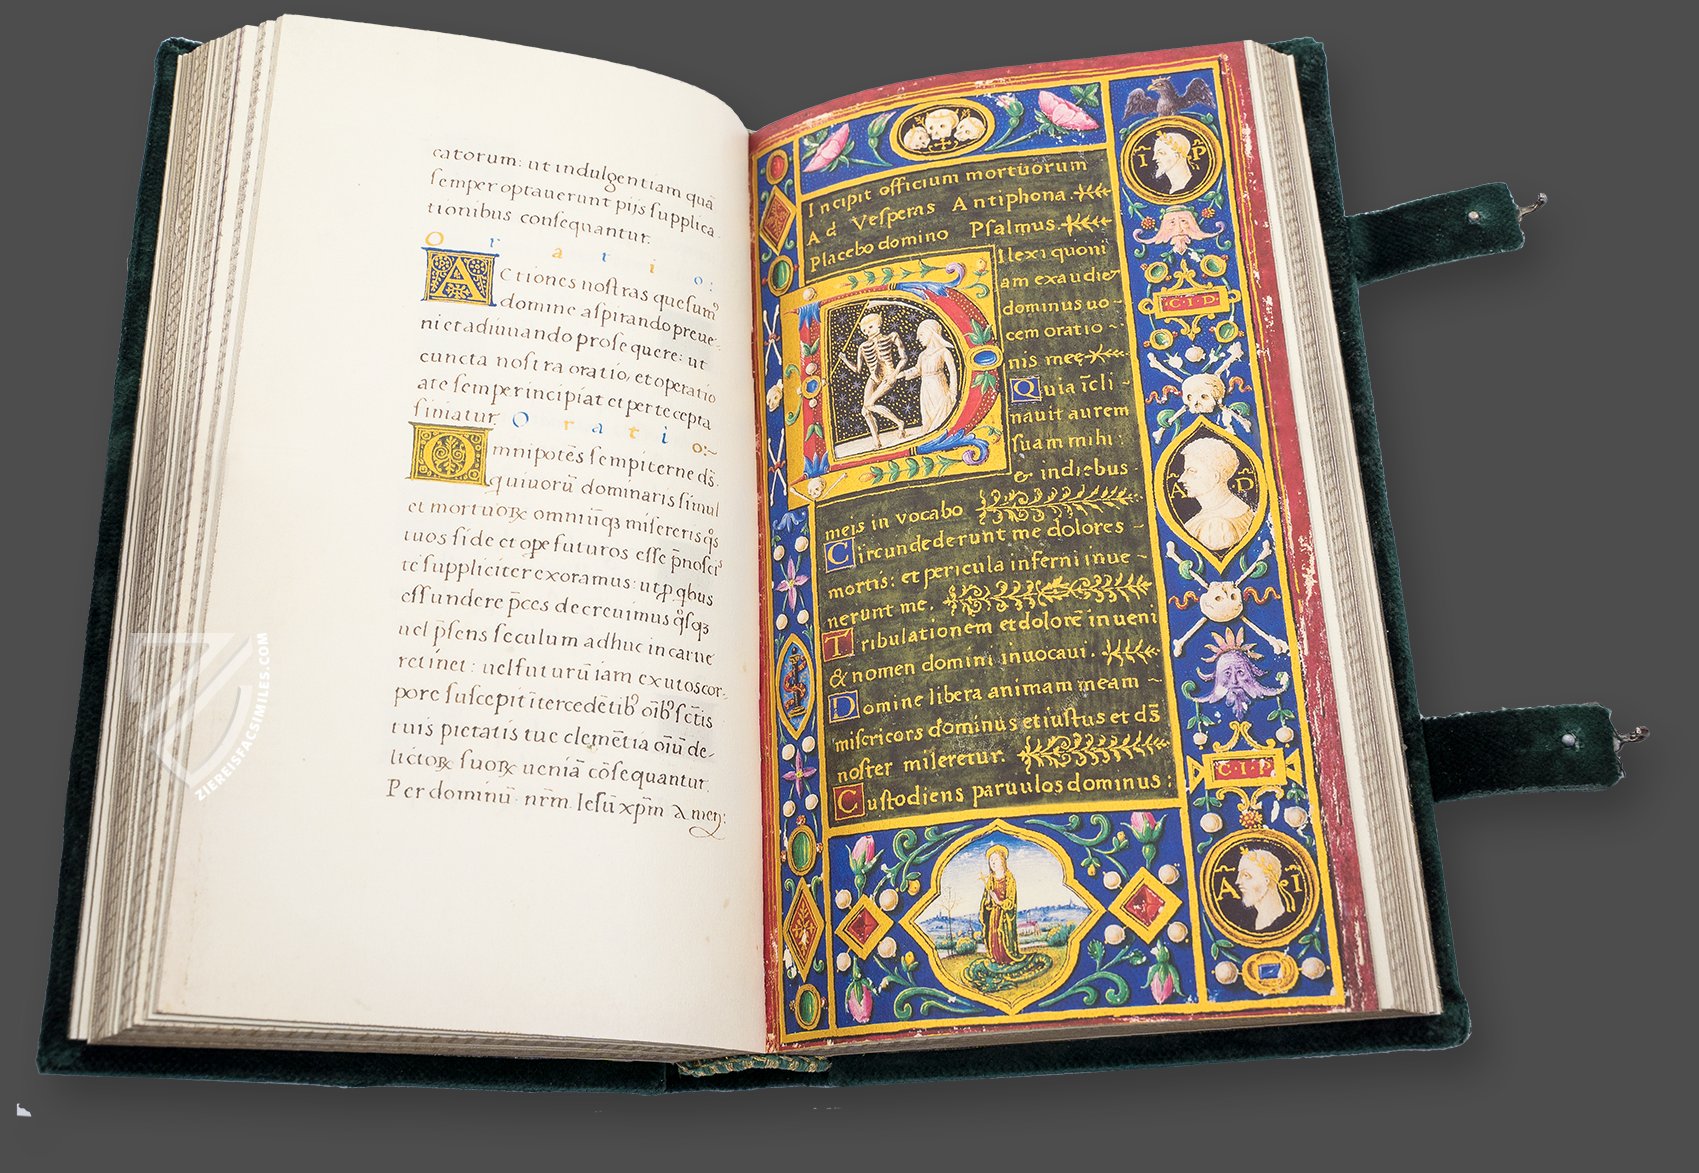 catorum: ut indulgentiam quā
semper optauerunt pijs supplica
tionibus consequantur.
Oratio:
Actiones nostras quesum⁹
domine aspirando preue
ni et adiuuando prosequere: ut
cuncta nostra oratio, et operatio
a te semper incipiat et per te cepta
finiatur. Oratio:~
Omnipotēs sempiterne ds̄.
qui uiuorū dominaris simul
et mortuoꝝ omniūqꝫ misereris q͛s
tuos fide et ope futuros esse p̄noscis
te suppliciter exoramus: ut ꝓ. qbus
effundere p̄ces decreuimus q͛sqꝫ
uel p̄sens seculum adhuc in carne
retinet: uel futurū iam exutos cor-
pore suscepit ītercedētibꝰ oībꝰ sc̄tis
tuis pietatis tue clemētia oīū de-
lictoꝝ suoꝝ ueniā cōsequantur.
Per dominū. nr̄m. Iesū xp̄m Amen:
Incipit officium mortuorum
Ad Vesperas Antiphona.
Placebo domino Psalmus.
Dilexi quoni
am exaudiet
dominus uo-
cem oratio-
nis mee
Quia īcli-
nauit aurem
suam mihi:
& in diebus
meis in vocabo
Circundederunt me dolores
mortis: et pericula inferni inue-
nerunt me.
Tribulationem et dolorē inueni
& nomen domini inuocaui.
Domine libera animam meam
misericors dominus et iustus et ds̄
noster miseretur.
Custodiens paruulos dominus:
I P
C.I.D
A D
C.I.D
A I
ZIEREISFACSIMILES.COM